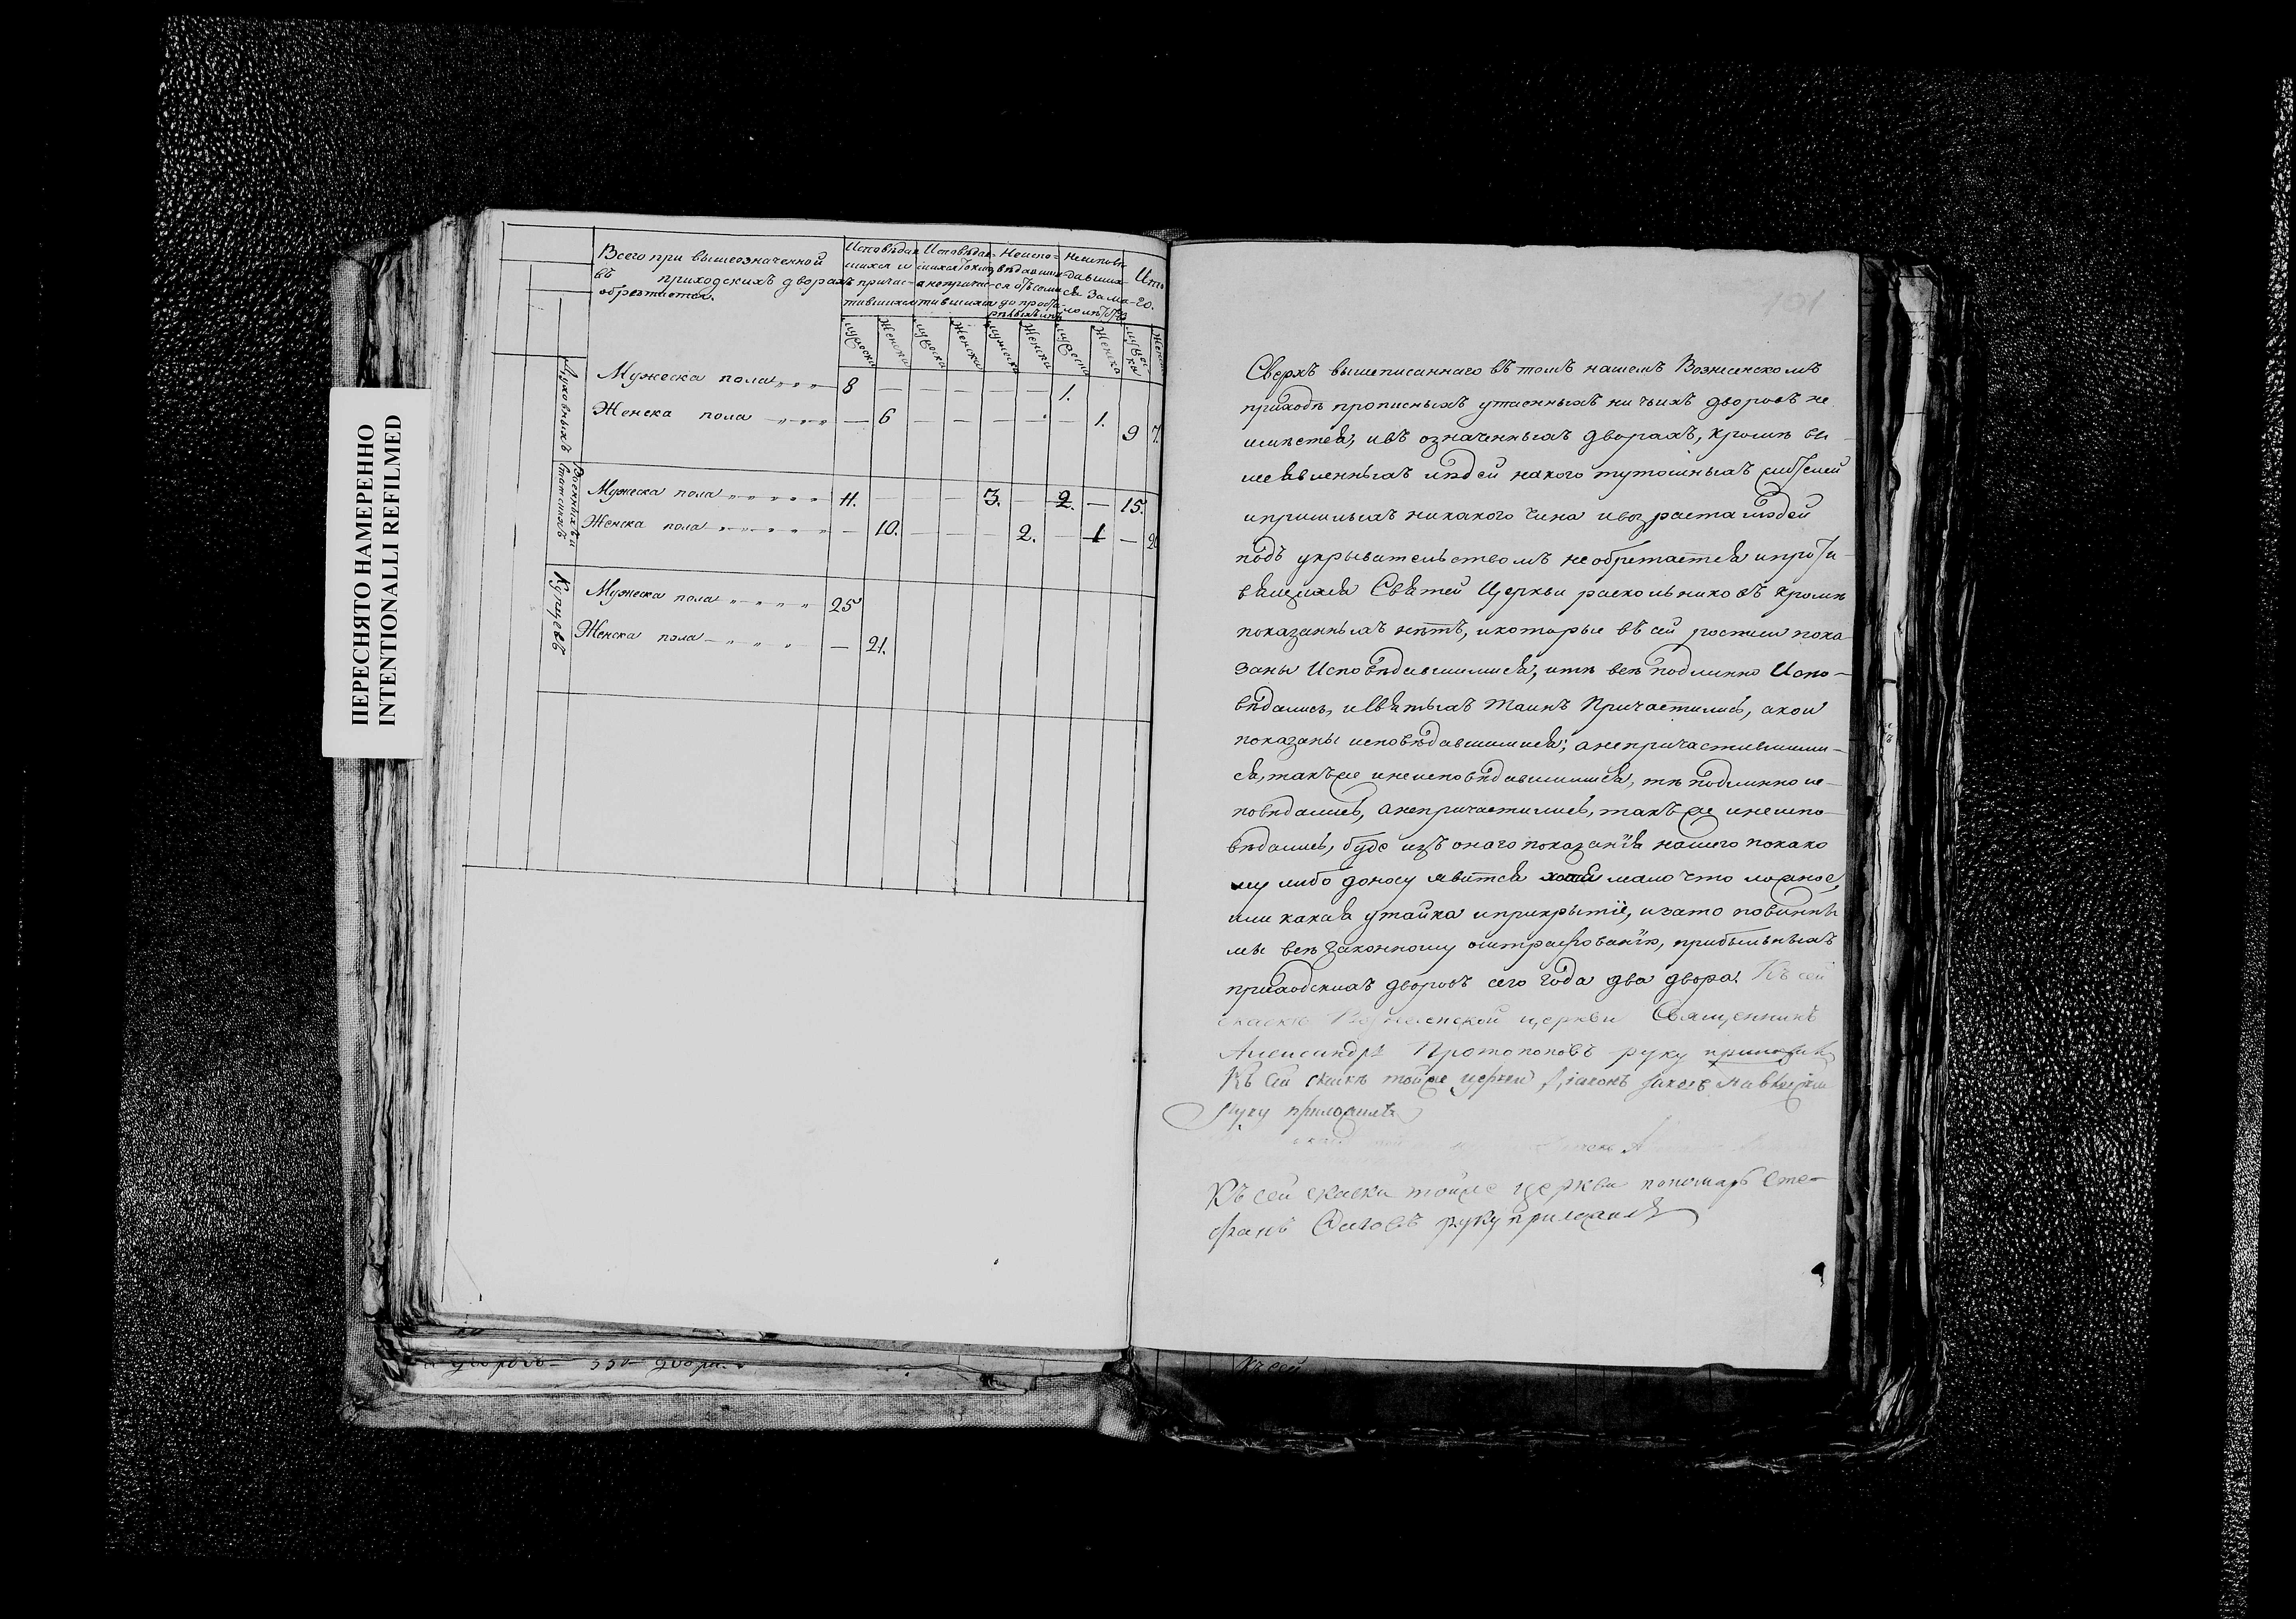 ПЕРЕСНЯТО НАМЕРЕННО
INTENTIONALLI REFILMED
Всего при вышеозначенной
въ приходскихъ дворахъ
обретается.
Исповѣдав
шихся и
причас-
тившихся
Исповѣдав-
шихся токмо
а непричас-
тившихся
Неиспо-
вѣдавших
ся отъ семи
до проста-
рѣлыхъ лѣтъ
Неисповѣ
давших
ся за ма-
лолѣтств
Ито
го.
мужеска Женска мужеска Женска мужеска Женска мужеска Женска мужеска Женска
Духовныхъ
Мужеска пола 8 — — — — 1.
Женска пола — 6 — — — — 1. 9 7.
Военныхъ и
статскихъ
Мужеска пола 11. — — — 3. — 2. — 15.
Женска пола — 10. — — — 2. — 1 —
Купцевъ
Мужеска пола 25
Женска пола — 21.
191
Сверхъ вышеписаннаго въ томъ нашемъ Вознесенскомъ
приходѣ прописныхъ утаенныхъ ни чьихъ дворовъ не
имѣется, и въ означенныхъ дворахъ, кромѣ вы-
шеявленныхъ людей какого тутошныхъ жителей
и пришлыхъ никакого чина и возраста людей
подъ укрывательствомъ не обретается и проти-
вящихся Святей Церкви раскольниковъ кромѣ
показанныхъ нѣтъ, и которые въ сей росписи пока-
заны Исповѣдавшимися, и тѣ всѣ подлинно Испо-
вѣдались, и Святыхъ Таинъ Причастились, а кои
показаны исповѣдавшимися; а непричастившими-
ся, такъже и неисповѣдавшимися, тѣ подлинно ис-
повѣдались, а непричастились, такъже и неиспо-
вѣдались, буде изъ онаго показанія нашего по како
му либо доносу явится хотя мало что ложное,
или какая утайка и прикрытіе, и зато повинны
мы всѣ законному оштрафованію, прибыльныхъ
приходскихъ дворовъ сего года два двора. Къ сей
скаске Вознесенской церкви Священникъ
Александръ Протопоповъ руку приложилъ
Къ сей скаскѣ тойже церкви Діаконъ
руку приложилъ
Къ сей скаски тойже церкви пономарь Сте-
фанъ руку приложилъ
дворовъ
Къ сей